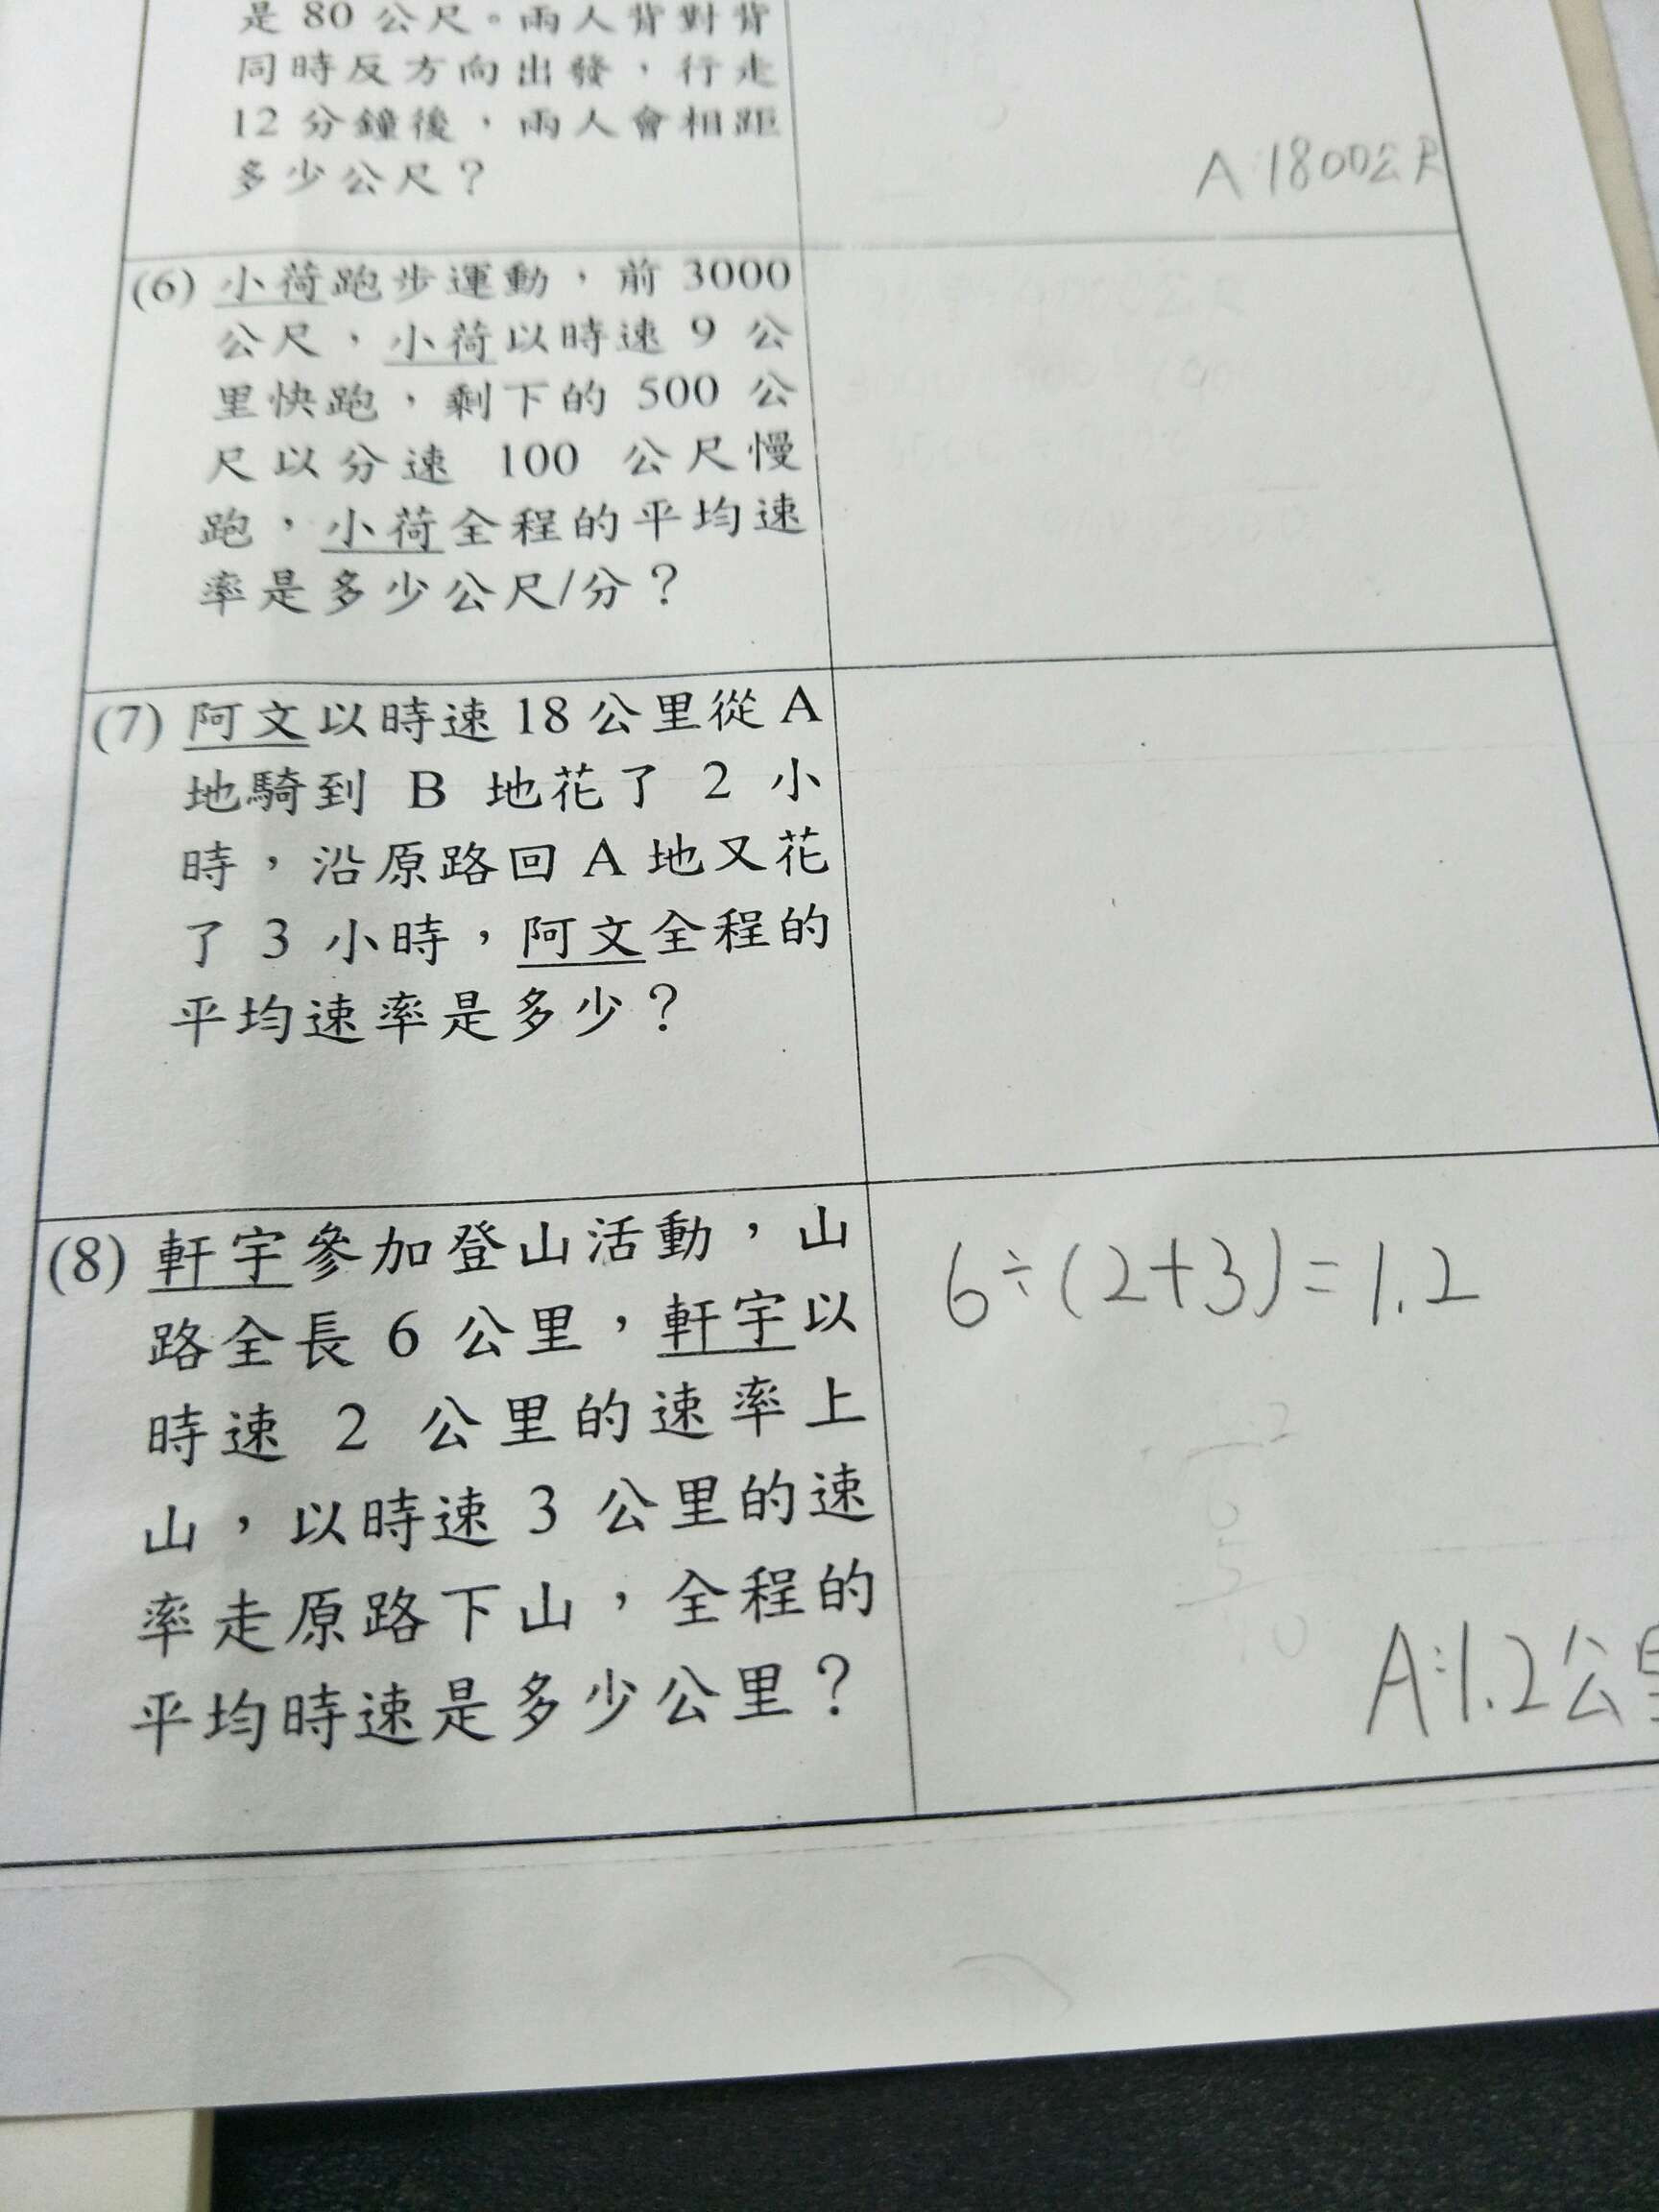 是 80 公尺。兩人背對背
同時反方向出發，行走
12 分鐘後，兩人會相距
多少公尺？
A:1800公尺
(6) 小荷跑步運動，前 3000
公尺，小荷以時速 9 公
里快跑，剩下的 500 公
尺以分速 100 公尺慢
跑，小荷全程的平均速
率是多少公尺/分？
(7) 阿文以時速 18 公里從 A
地騎到 B 地花了 2 小
時，沿原路回 A 地又花
了 3 小時，阿文全程的
平均速率是多少？
(8) 軒宇參加登山活動，山
路全長 6 公里，軒宇以
時速 2 公里的速率上
山，以時速 3 公里的速
率走原路下山，全程的
平均時速是多少公里？
6÷(2+3)=1.2
A:1.2公里